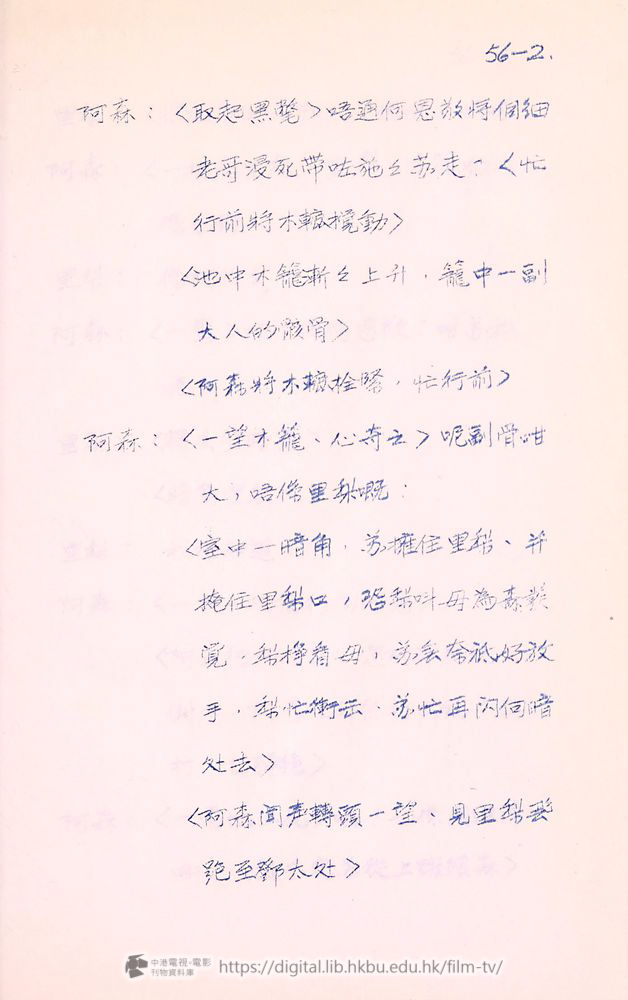 56-2.
阿森：〈取起黑氅〉唔通何恩敬將個細
老哥浸死帶咗施々苏走？〈忙
行前將木轆攪動〉
〈池中木籠漸々上升，籠中一副
大人的骸骨〉
〈阿森將木轆拴緊，忙行前〉
阿森：〈一望木籠、心奇之〉呢副骨咁
大，唔係里梨嘅：
〈室中一暗角，苏擁住里梨、并
掩住里梨口，恐梨叫母為森發
覺，梨掙看母，苏無奈祗好放
手，梨忙衝出，苏忙再闪回暗
处去〉
〈阿森聞声轉頭一望，見里梨飛
跑至鄧太处〉
中港電視·電影
刊物資料庫
https://digital.lib.hkbu.edu.hk/film-tv/